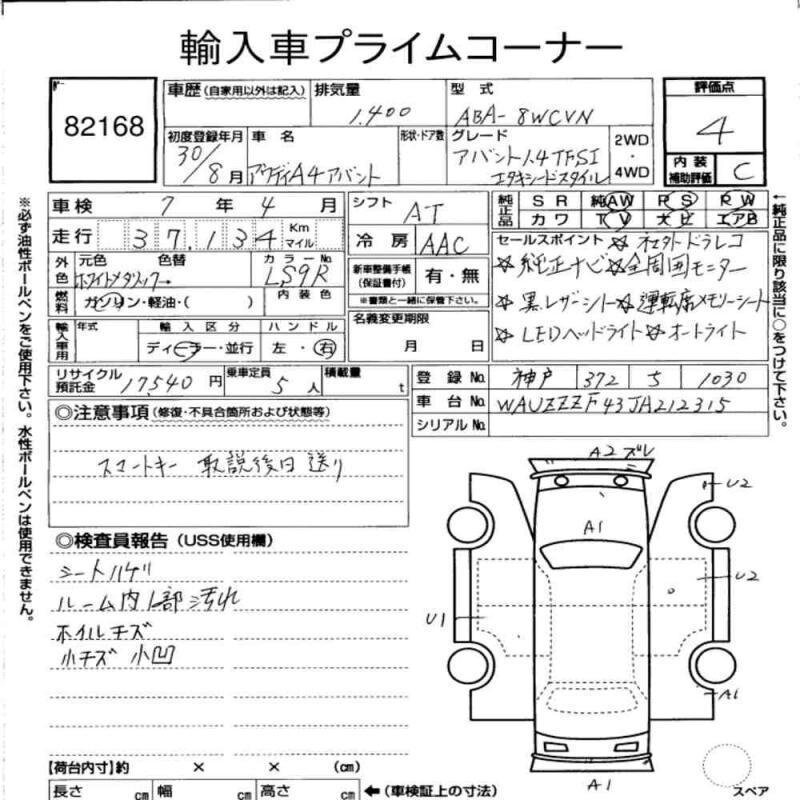 輸入車プライムコーナー
82168
車歴 (自家用以外は記入)
排気量
1.400
型式
ABA-8WCVN
評価点
4
初度登録年月
30/8月
車名
アウディA4アバント
形状・ドア数
グレード
アバント1.4TFSI
2WD
・
4WD
内装
補助評価
C
車検 7年 4月
シフト AT
純正品
SR 純AW PS PW
カワ TV 大ビ エアB
走行 37,134 Km マイル
冷房 AAC
セールスポイント ☆社外ドラレコ
外色
元色
ホワイトメタリック
色替
カラーNo.
LS9R
新車整備手帳
(保証書付)
有・無
※書類と一緒に保管下さい。
☆純正ナビ☆全周囲モニター
☆黒レザーシート☆運転席メモリーシート
☆LEDヘッドライト☆オートライト
燃料
ガソリン・軽油・( )
内装色
名義変更期限
月 日
輸入車用
年式
輸入区分
ディーラー・並行
ハンドル
左・右
リサイクル
預託金
17,540円
乗車定員
5人
積載量
t
登録No.
神戸 372 ち 1030
車台No.
WAUZZZF43JA212315
シリアルNo.
◎注意事項 (修復・不具合箇所および状態等)
スマートキー 取説後日送り
◎検査員報告 (USS使用欄)
シートハゲリ
ルーム内1部汚れ
ホイルキズ
小キズ 小凹
A2 ズレ
U2
A1
U2
U1
A1
A1
スペア
【荷台内寸】約 × × (cm)
長さ cm 幅 cm 高さ cm ←(車検証上の寸法)
※必ず油性ボールペンをご使用下さい。水性ボールペンは使用できません。
←純正品に限り該当に○をつけて下さい。